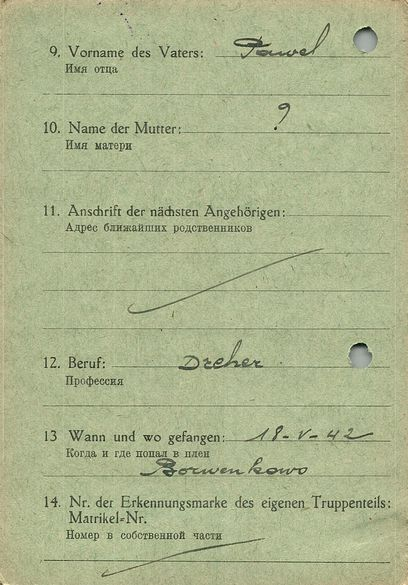 9. Vorname des Vaters: Pawel
Имя отца
10. Name der Mutter: ?
Имя матери
11. Anschrift der nächsten Angehörigen:
Адрес ближайших родственников
12. Beruf: Dreher
Профессия
13 Wann und wo gefangen: 18-V-42
Когда и где попал в плен
Borwenkowo
14. Nr. der Erkennungsmarke des eigenen Truppenteils:
Matrikel-Nr.
Номер в собственной части